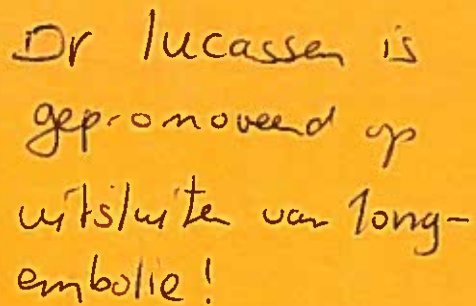 Dr lucassen is
gepromoveerd op
uitsluiten van long-
embolie!